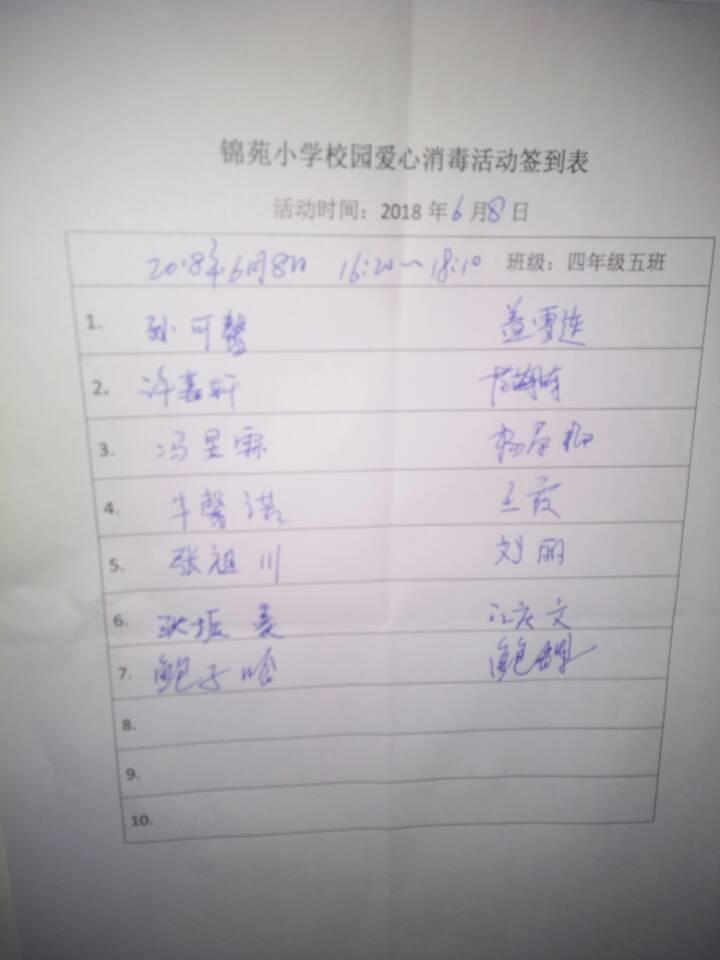 锦苑小学校园爱心消毒活动签到表
活动时间：2018年6月8日
2018年6月8日 16:20~18:10 班级：四年级五班
1. 孙可馨 盖雪连
2. 许嘉轩
3. 冯昱霖 杨
4. 牛馨 王霞
5. 张祖川 刘丽
6. 振 江庆文
7. 鲍子晗 鲍
8.
9.
10.